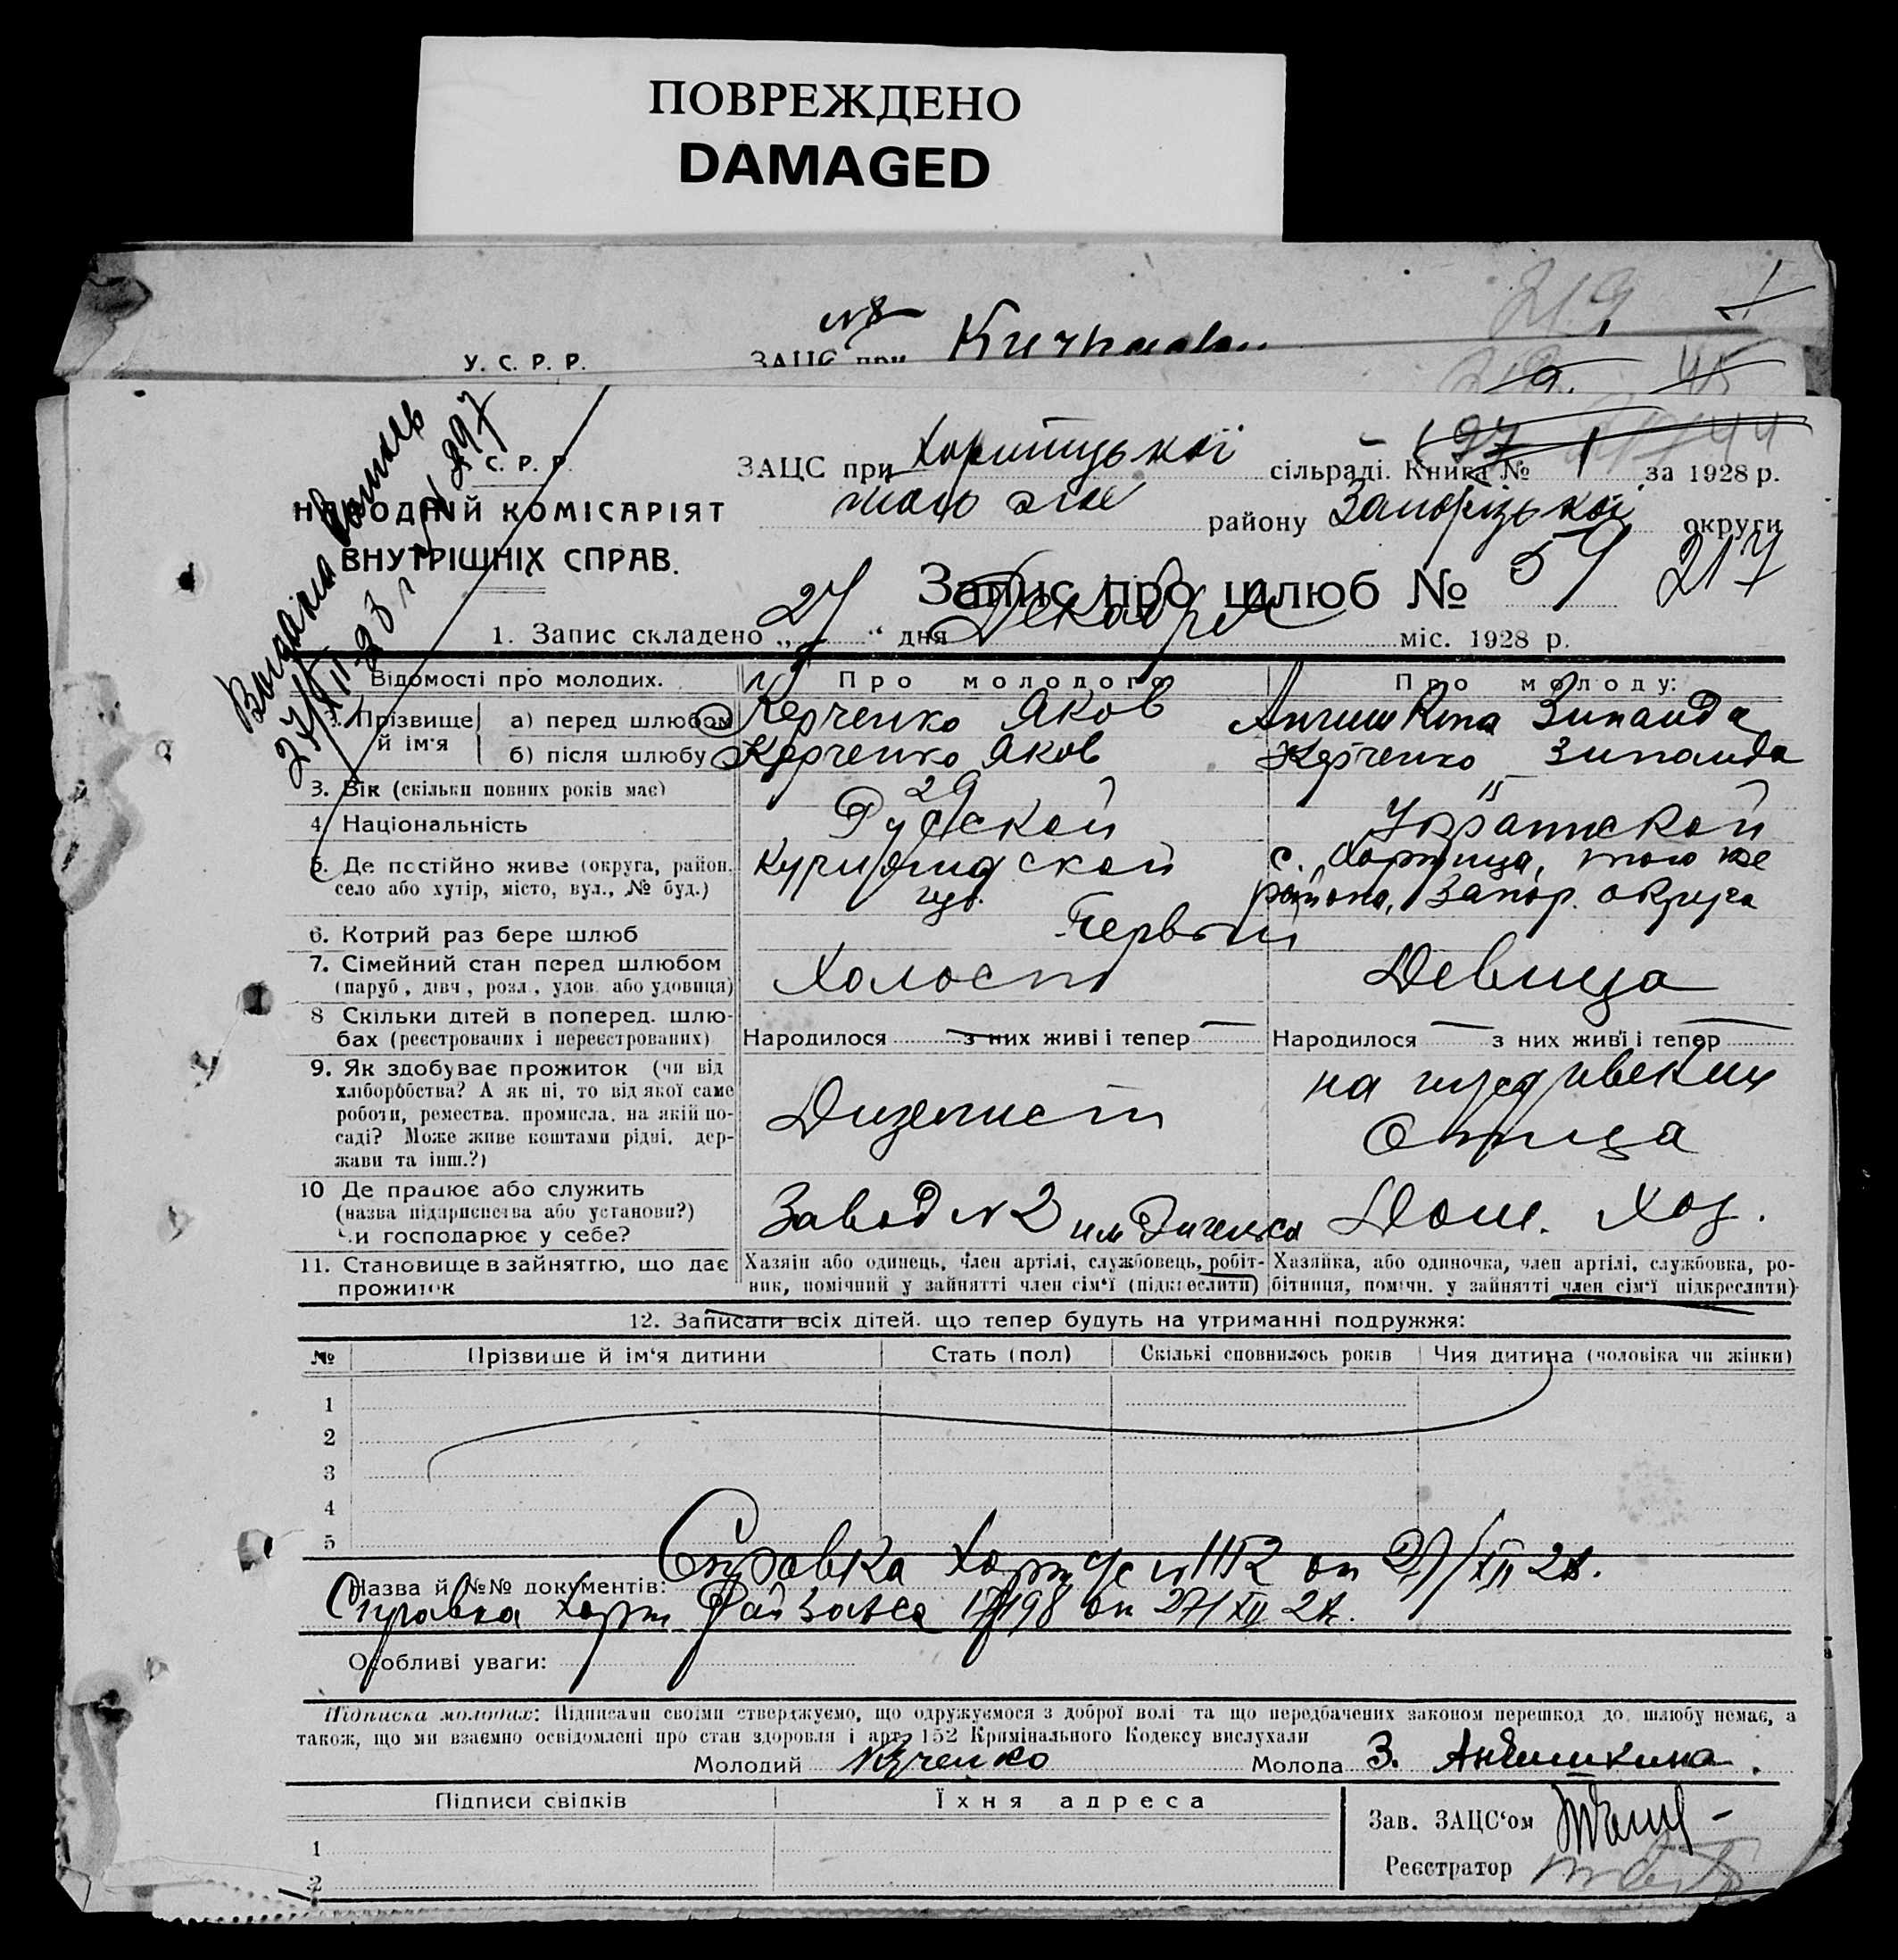 ПОВРЕЖДЕНО
DAMAGED
219
№8
У. С. Р. Р.
ЗАЦС при
45
Видана Выпись
27/XII-28 г. № 297
С. Р. Р.
НАРОДНІЙ КОМІСАРІЯТ
ВНУТРІШНІХ СПРАВ.
ЗАЦС при Хортицької сільраді. Книга № 1 за 1928 р.
того же району Запорізької округи
Запис про шлюб № 59 217
1. Запис складено „27“ дня Декабря міс. 1928 р.
Відомості про молодих. Про молодого Про молоду:
2. Прізвище й ім'я
а) перед шлюбом Керченко Яков Анчишкина Зинаида
б) після шлюбу Керченко Яков Керченко Зинаида
3. Вік (скільки повних років має) 29
4. Національність Русской Украинской
5. Де постійно живе (округа, район, село або хутір, місто, вул., № буд.)
с. Хортица, того же
района, Запор. округа
6. Котрий раз бере шлюб Первый
7. Сімейний стан перед шлюбом Холост Девица
(паруб., дівч., розл., удов. або удовиця)
8 Скільки дітей в поперед. шлю-
бах (реєстрованих і нереєстрованих) Народилося з них живі і тепер Народилося з них живі і тепер
9. Як здобуває прожиток (чи від
хліборобства? А як ні, то від якої саме
роботи, ремества, промисла, на якій по-
саді? Може живе коштами рідні, дер-
жави та інш.?)
на иждивении
Отца
10 Де працює або служить
(назва підприємства або установи?)
Чи господарює у себе?
Завод №2 им Дом. Хоз.
11. Становище в зайняттю, що дає
прожиток
Хазяїн або одинець, член артілі, службовець, робіт-
ник, помічний у зайнятті член сім'ї (підкреслити)
Хазяйка, або одиночка, член артілі, службовка, ро-
бітниця, помічн. у зайнятті член сім'ї підкреслити)
12. Записати всіх дітей, що тепер будуть на утриманні подружжя:
№ Прізвище й ім'я дитини Стать (пол) Скількі сповнилось років Чия дитина (чоловіка чи жінки)
1
2
3
4
5
Справка Хорт от 27/XII 28.
Назва й №№ документів:
Справка Хорт Райзагса 17198 от 27/XII 28.
Особливі уваги:
Підписка молодих: Підписами своїми стверджуємо, що одружуємося з доброї волі та що передбачених законом перешкод до шлюбу немає, а
також, що ми взаємно освідомлені про стан здоровля і арт. 152 Кримінального Кодексу вислухали
Молодий Молода З. Анчишкина.
Підписи свідків Їхня адреса
Зав. ЗАЦС'ом
Реєстратор
1
2